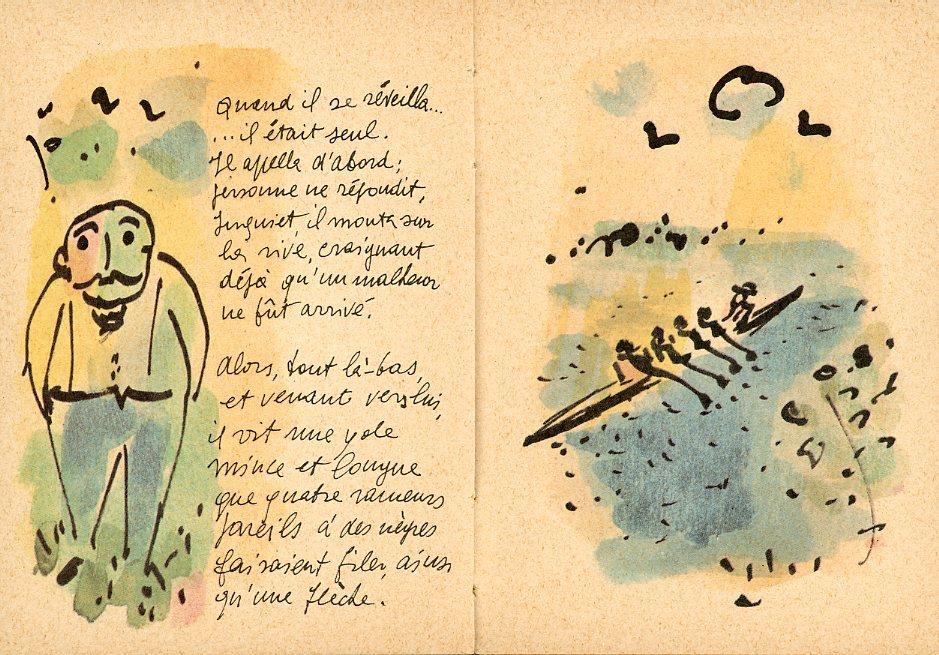 Quand il se réveilla...
...il était seul.
Il apella d'abord;
personne ne répondit,
Inquiet, il monta sur
la rive, craignant
déjà qu'un malheur
ne fût arrivé.
Alors, tout là-bas,
et venant vers lui,
il vit une yole
mince et longue
que quatre rameurs
pareils à des nègres
faisaient filer, ainsi
qu'une flèche.